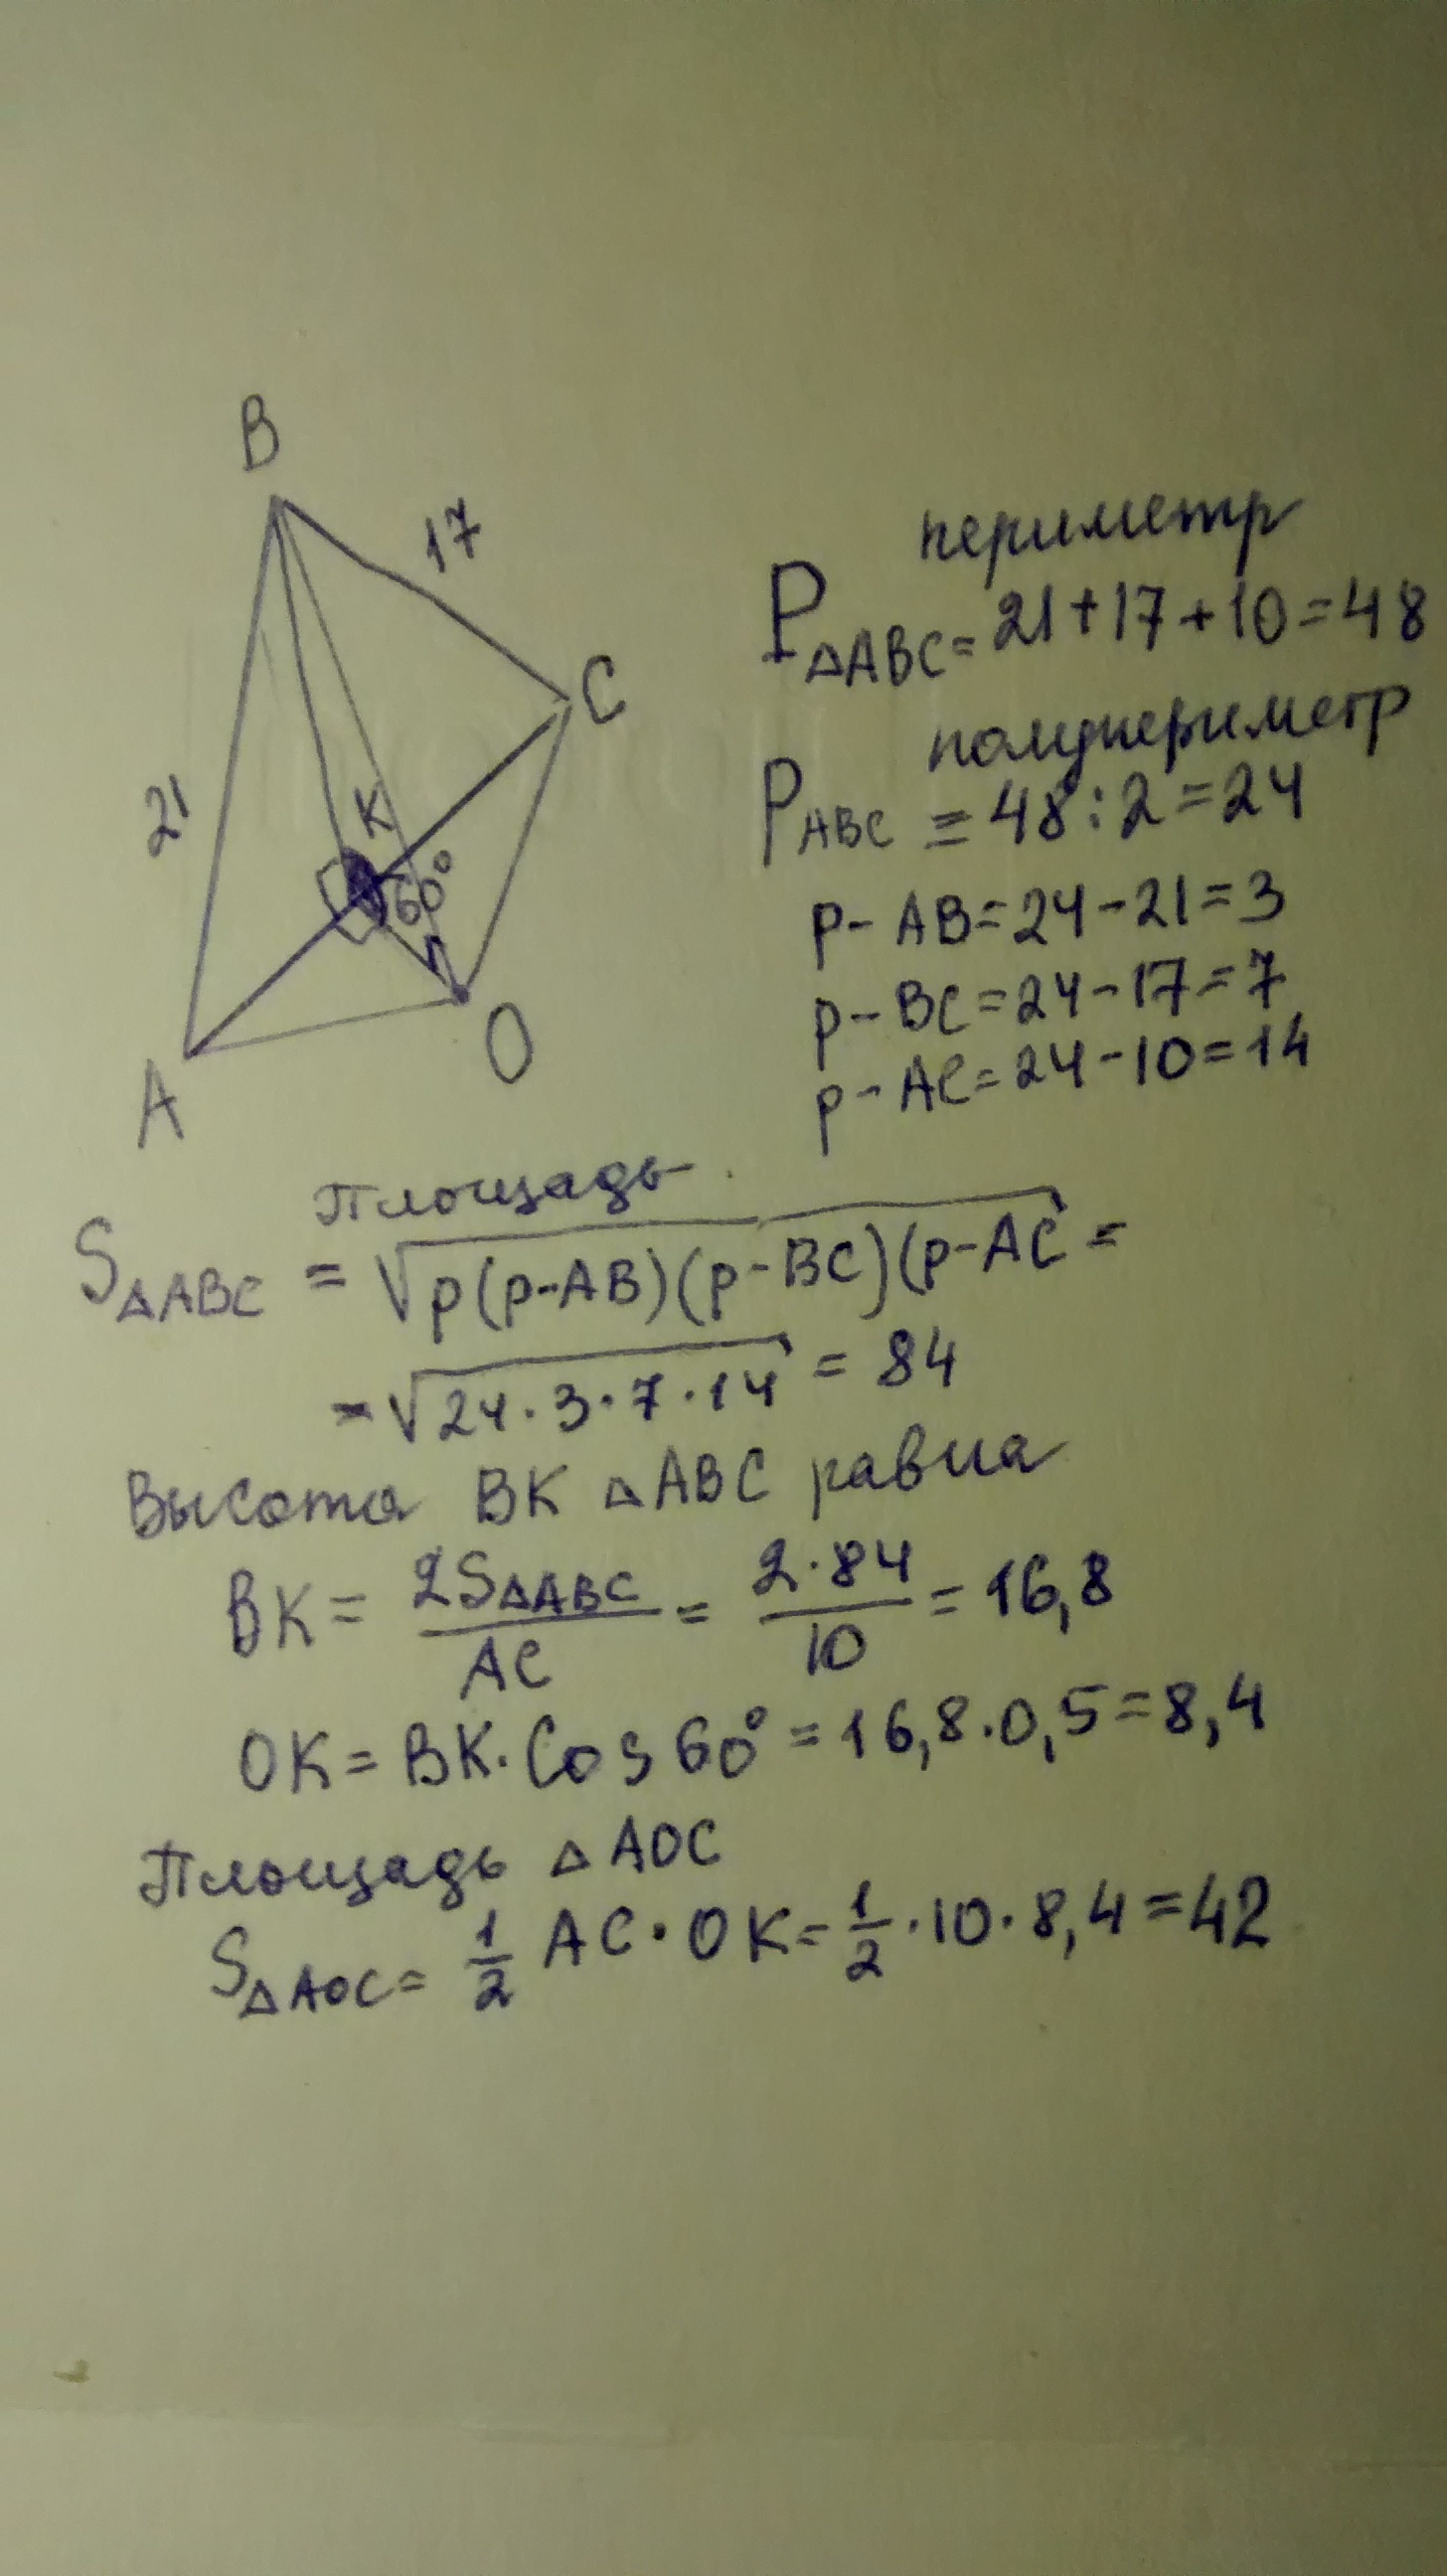 B
17
C
21
K
60°
O
A
периметр
P△ABC = 21+17+10=48
полупериметр
PABC = 48:2=24
p-AB=24-21=3
p-BC=24-17=7
p-AC=24-10=14
Площадь
S△ABC = √p(p-AB)(p-BC)(p-AC =
=√24·3·7·14 = 84
Высота BK △ABC равна
BK = 2S△ABC/AC = 2·84/10 = 16,8
OK = BK·Cos60° = 16,8·0,5=8,4
Площадь △AOC
S△AOC = 1/2 AC·OK = 1/2·10·8,4=42